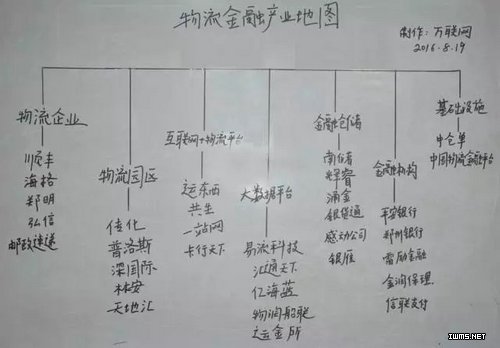 物流金融产业地图
制作：万联网
2016.8.19
物流企业
顺丰
海格
郑明
弘信
邮政速递
物流园区
传化
普洛斯
深国际
林安
天地汇
互联网+物流平台
运东西
共生
一站网
卡行天下
大数据平台
易流科技
汇通天下
亿海蓝
物润船联
运金所
金融仓储
南储
浦金
银货通
感动公司
银雁
金融机构
平安银行
郑州银行
雷励金融
金润保理
信联支付
基础设施
中仓单
中国物流金融平台
IWMS.NET